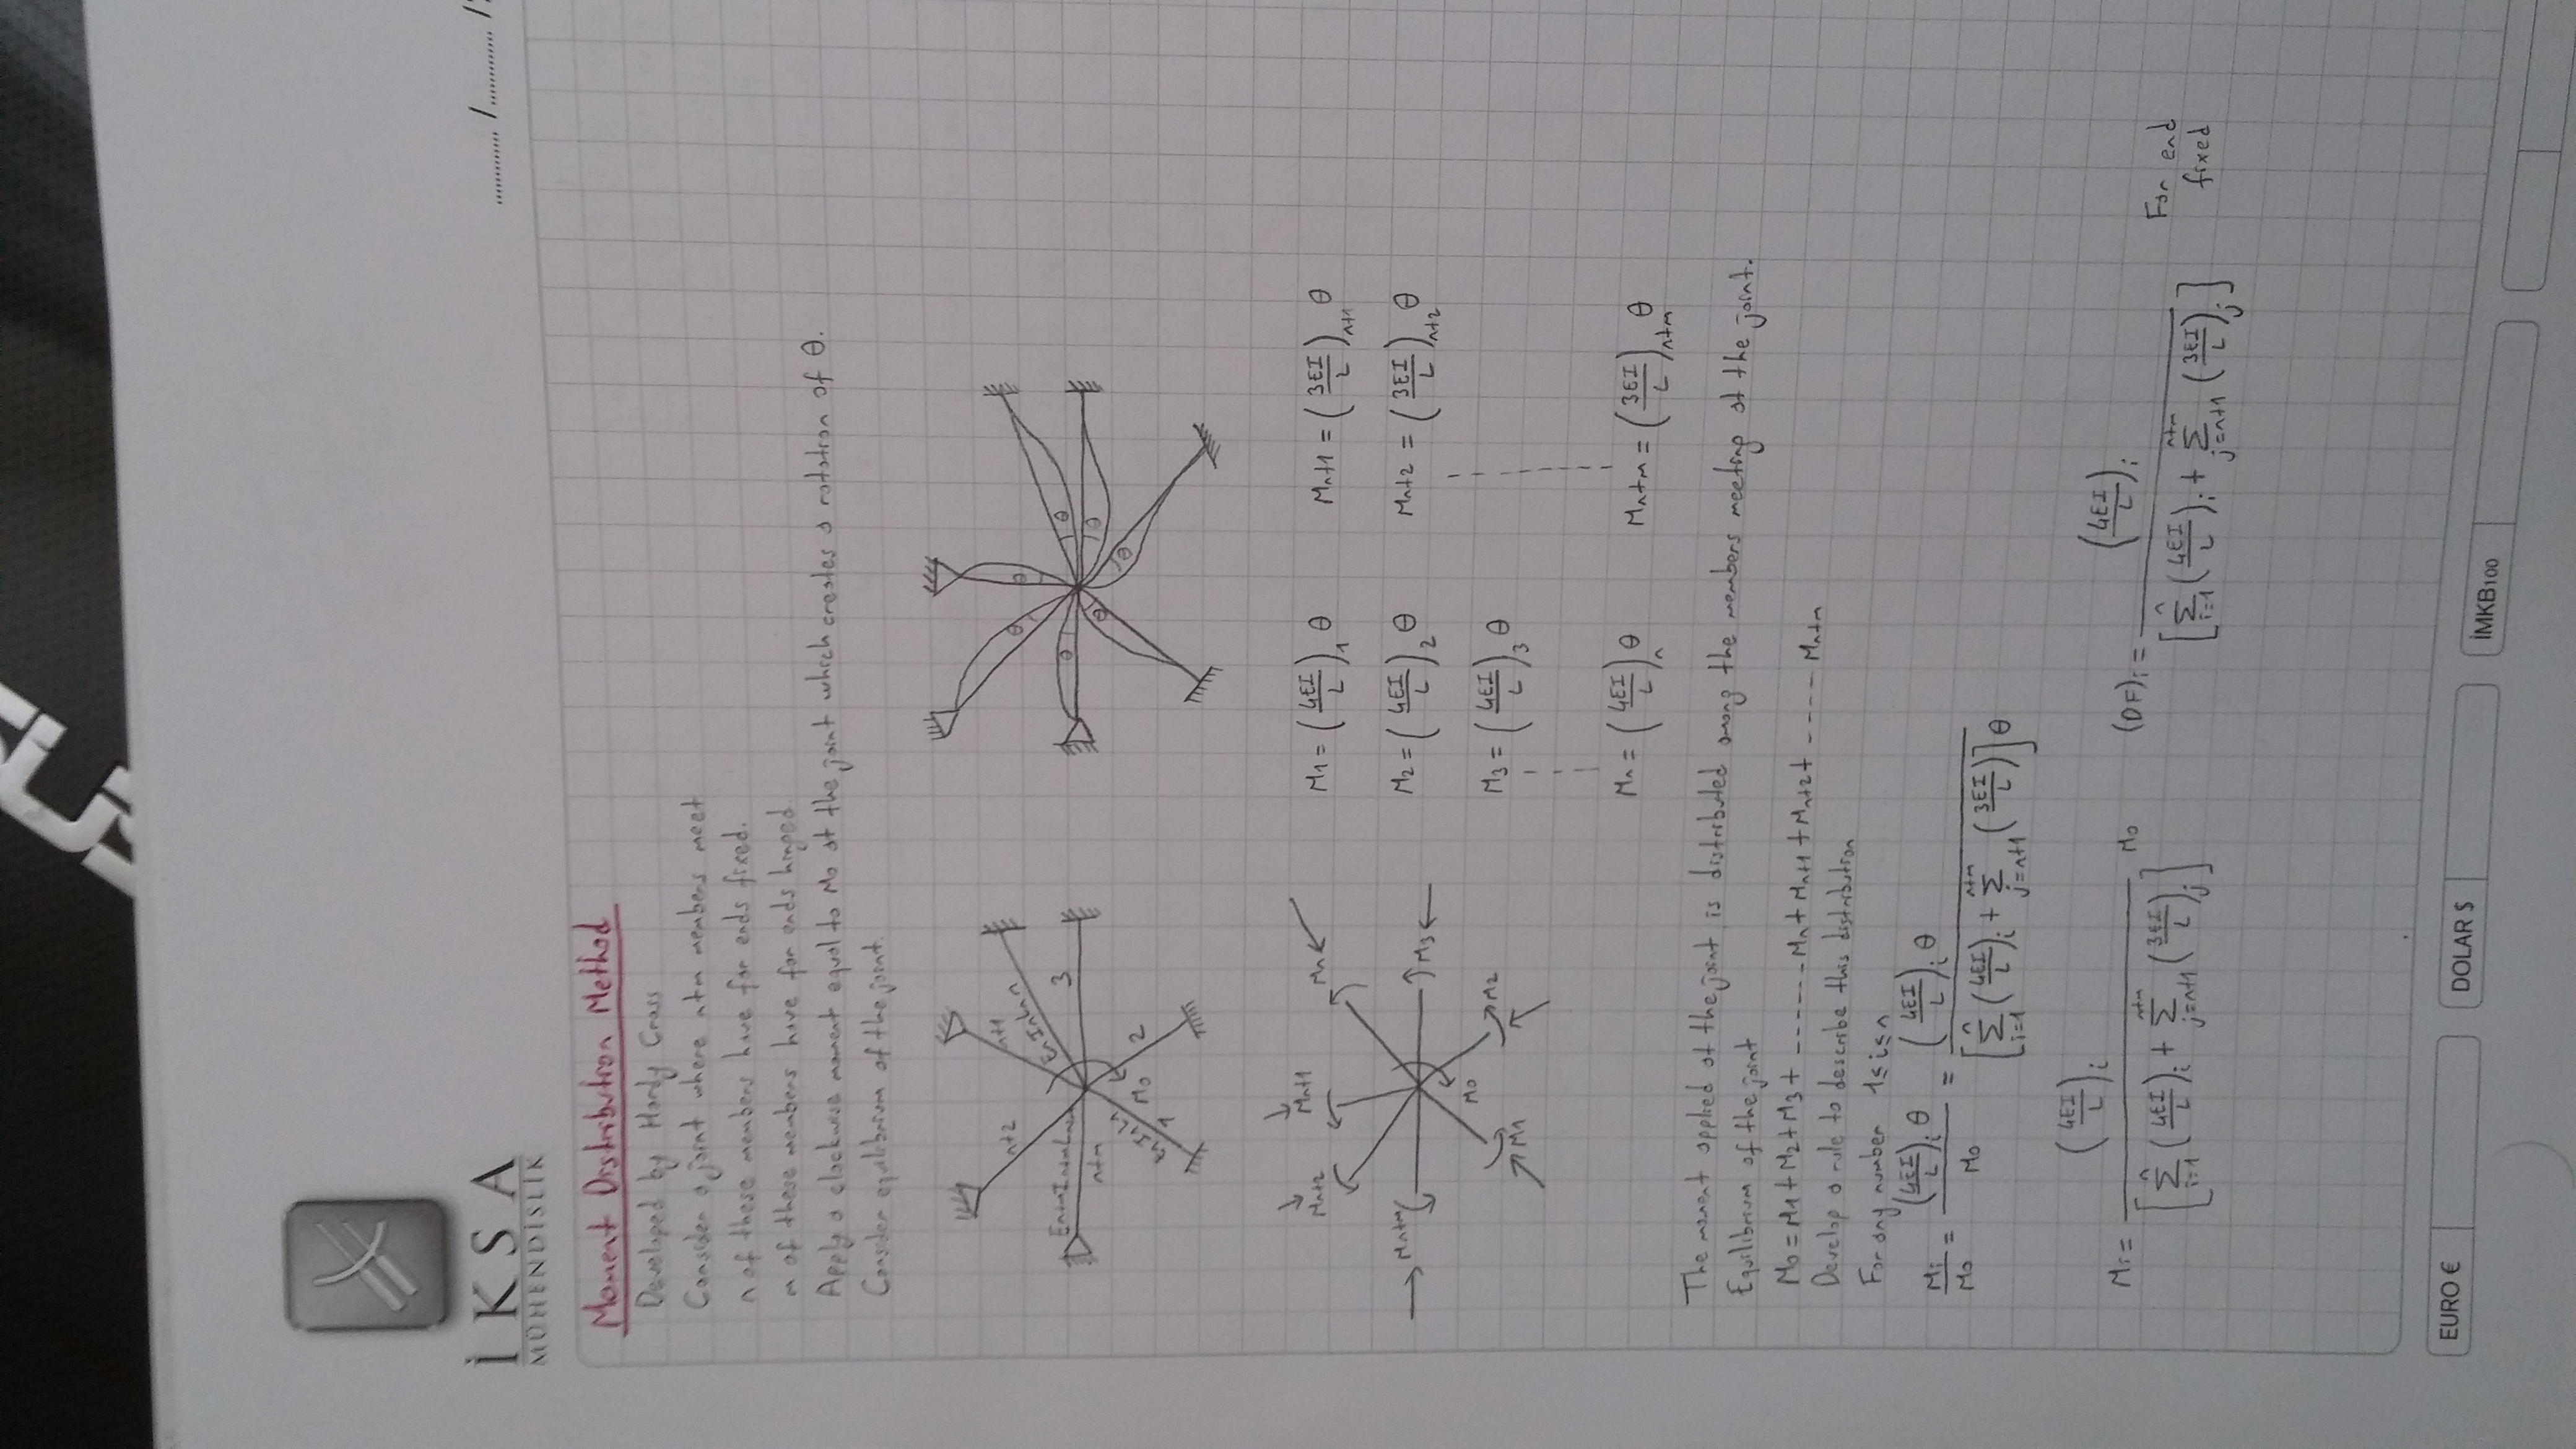 İKSA
MÜHENDİSLİK
............ / ............ /
Moment Distribution Method
Developed by Hardy Cross
Consider a joint where n+m members meet
n of these members have far ends fixed.
m of these members have far ends hinged
Apply a clockwise moment equal to M₀ at the joint which creates a rotation of θ.
Consider equilibrium of the joint.
n+2 n+1 EnInLn n 3 En+mIn+mLn+m n+m E1I1L1 1 M₀ 2
θ θ θ θ θ θ θ
Mn+2 Mn+1 Mn Mn+m M3 M₀ M1 M2
M1 = (4EI/L)1 θ Mn+1 = (3EI/L)n+1 θ
M2 = (4EI/L)2 θ Mn+2 = (3EI/L)n+2 θ
M3 = (4EI/L)3 θ
Mn = (4EI/L)n θ Mn+m = (3EI/L)n+m θ
The moment applied at the joint is distributed among the members meeting at the joint.
Equilibrium of the joint
M₀ = M1 + M2 + M3 + ------ Mn + Mn+1 + Mn+2 + ---- Mn+m
Develop a rule to describe this distribution
For any number 1≤i≤n
Mi/M₀ = (4EI/L)i θ / M₀ = (4EI/L)i θ / [Σ i=1 n (4EI/L)i + Σ j=n+1 n+m (3EI/L)] θ
Mi = (4EI/L)i / [Σ i=1 n (4EI/L)i + Σ j=n+1 n+m (3EI/L)j] M₀ (DF)i = (4EI/L)i / [Σ i=1 n (4EI/L)i + Σ j=n+1 n+m (3EI/L)j] Far end
fixed
EURO € DOLAR $ İMKB100